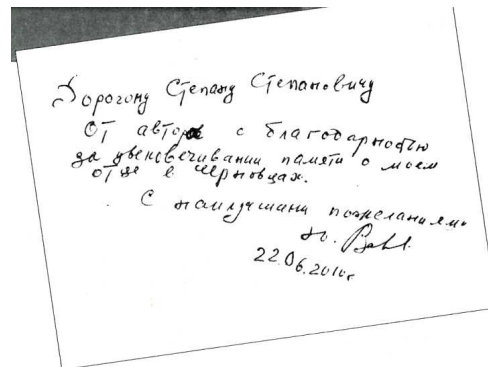 Дорогому Степану Степановичу
от автора с благодарностью
за увековечивании памяти о моем
отце в Черновцах.
С наилучшими пожеланиями
Ю.
22.06.2010г